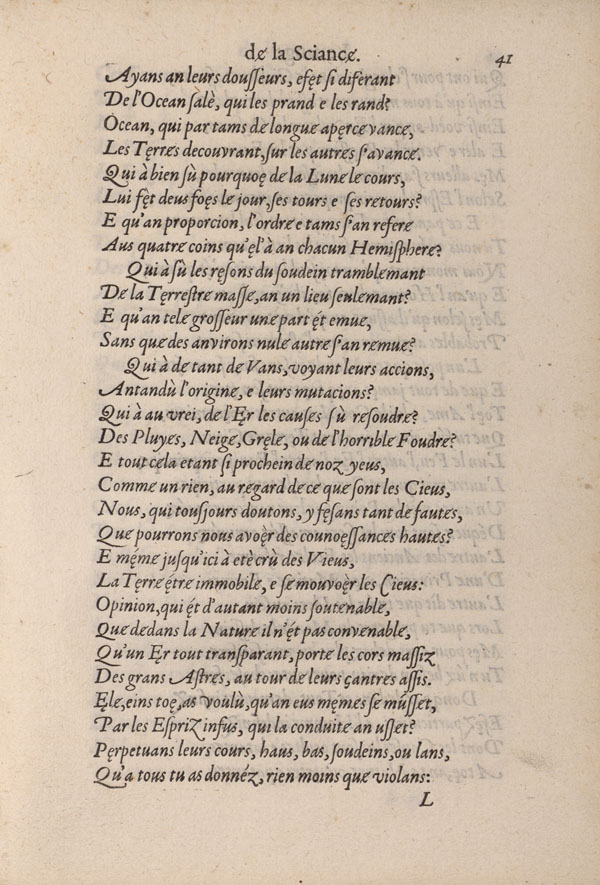 dę la Sciancę.
41
Ayans an leurs dousseurs, efęt si diferant
De l'Ocean salè, qui les prand e les rand?
Ocean, qui par tams de longue apęrcevance,
Les Tęrres decouvrant, sur les autres s'avance.
Qui à bien sù pourquoę de la Lune le cours,
Lui fęt deus foęs le jour, ses tours e ses retours?
E qu'an proporcion, l'ordre e tams s'an refere
Aus quatre coins qu'ęl' à an chacun Hemisphere?
Qui à sù les ręsons du soudein tramblemant
De la Tęrrestre masse, an un lieu seulemant?
E qu'an tele grosseur une part ęt emue,
Sans que des anvirons nule autre s'an remue?
Qui à de tant de Vans, voyant leurs accions,
Antandù l'origine, e leurs mutacions?
Qui à au vrei, de l'Er les causes sù resoudre?
Des Pluyes, Neige, Gręle, ou de l'horrible Foudre?
E tout cela etant si prochein de noz yeus,
Comme un rien, au regard de ce que sont les Cieus,
Nous, qui tousjours doutons, y fęsans tant de fautes,
Que pourrons nous avoęr des counoęssances hautes?
E męme jusqu'ici à etè crù des Vieus,
La Tęrre ętre immobile, e se mouvoęr les Cieus:
Opinion, qui ęt d'autant moins soutenable,
Que dedans la Nature il n'ęt pas convenable,
Qu'un Er tout transparant, porte les cors massiz
Des grans Astres, au tour de leurs çantres assis.
Ęle, eins toę, as voulù, qu'an eus męmes se músset,
Par les Espriz infus, qui la conduite an usset?
Pęrpetuans leurs cours, haus, bas, soudeins, ou lans,
Qu'a tous tu as donnéz, rien moins que violans:
L